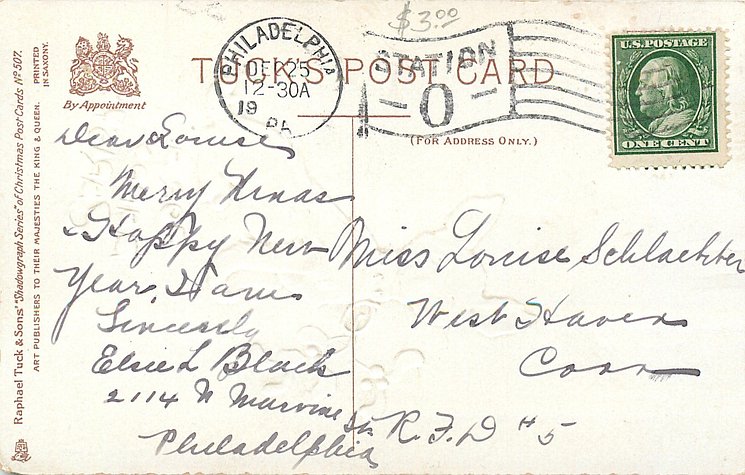 $3.00
PHILADELPHIA
DEC 25
12-30A
19
PA
STATION
O
U.S. POSTAGE
ONE CENT
TUCK'S POST CARD
By Appointment
(FOR ADDRESS ONLY.)
Raphael Tuck & Sons' "Shadowgraph Series" of Christmas Post Cards Nº 507.
ART PUBLISHERS TO THEIR MAJESTIES THE KING & QUEEN.
PRINTED
IN SAXONY.
Dear Louise
Merry Xmas
& Happy New
Year. I am
Sincerely
Elsie L Black
2114 N Marvine St.
Philadelphia
Miss Louise Schlachter
West Haven
Conn
R.F.D #5